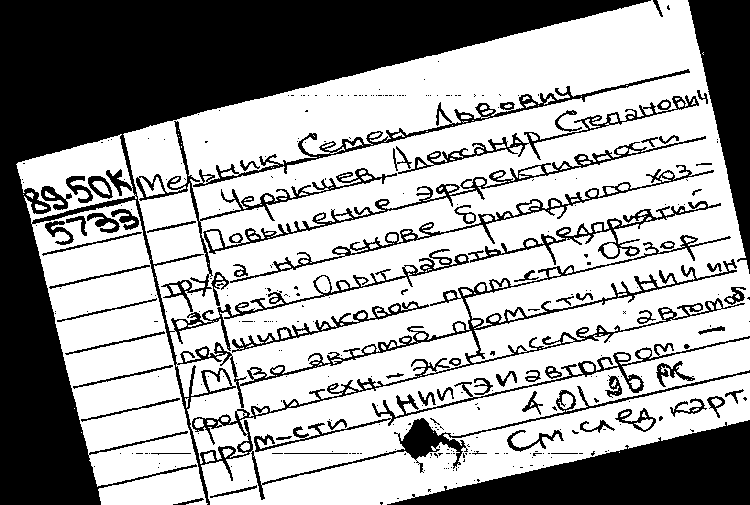 89-50К
5733
Мельник, Семен Львович,
Черакшев, Александр Степанович
Повышение эффективности
труда на основе бригадного хоз-
расчета: Опыт работы предприятий
подшипниковой пром-сти: Обзор
/М-во автомоб. пром-сти, ЦНИИ ин-
форм и техн.-экон. исслед. автомоб
пром-сти ЦНИИТЭИавтопром. —
4.01.90 РК
См. след. карт.